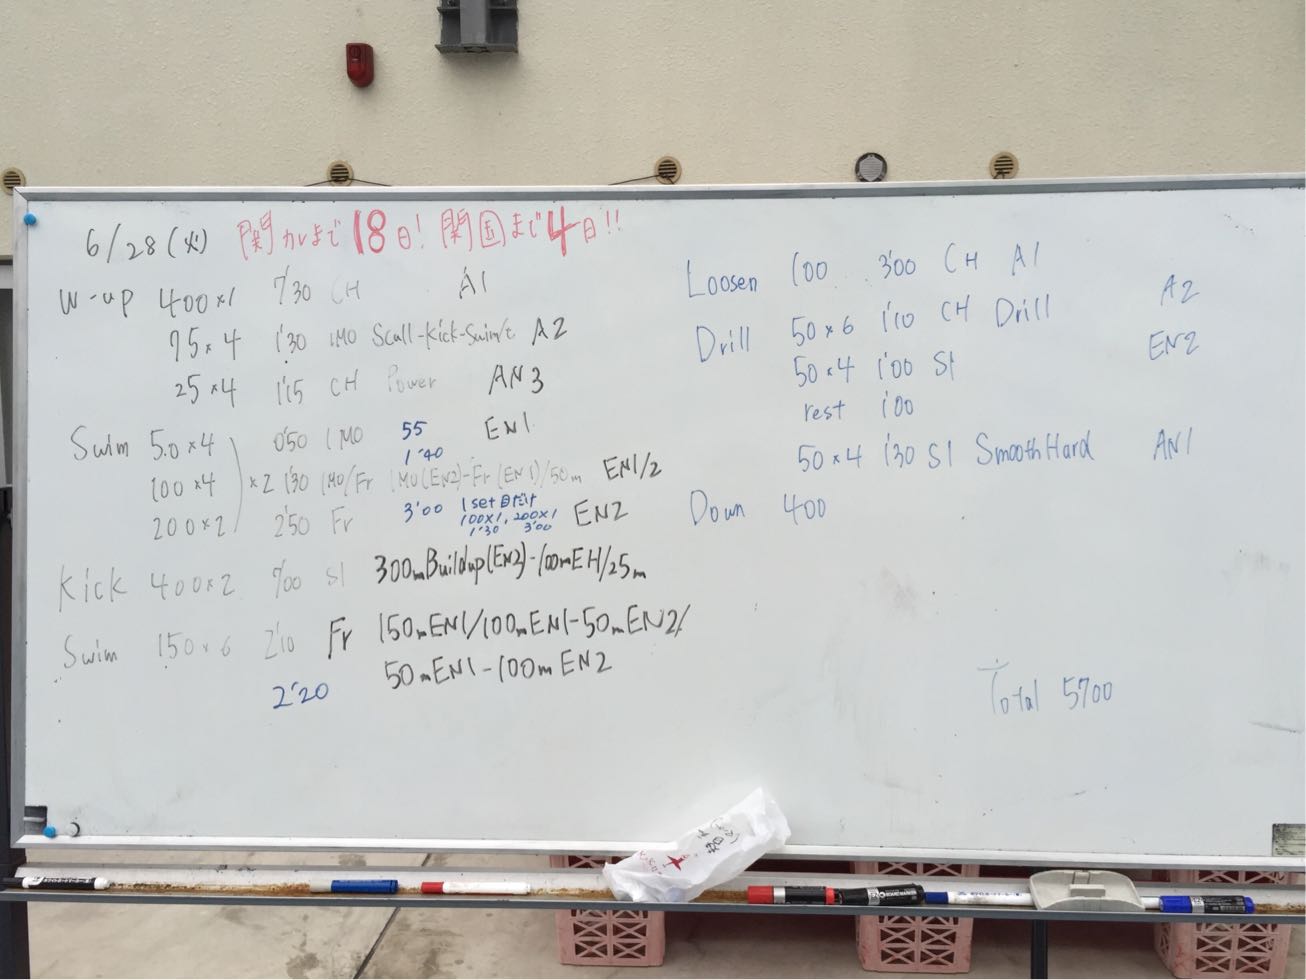 6/28(火) 関カレまで18日! 関国まで4日!!
W-up 400×1 7'30 CH A1
75×4 1'30 IMO Scull-Kick-Swim/t A2
25×4 1'15 CH Power AN3
Swim 50×4 0'50 IMO 55 EN1
1'40
100×4 ×2 1'30 IMO/Fr IMO(EN2)-Fr(EN1)/50m EN1/2
200×2 2'50 Fr 3'00 1set目だけ EN2
100×1, 200×1
1'30 3'00
Kick 400×2 7'00 S1 300mBuildup(EN2)-100mEH/25m
Swim 150×6 2'10 Fr 150mEN1/100mEN1-50mEN2/
2'20 50mEN1-100mEN2
Loosen 100 3'00 CH A1
Drill 50×6 1'10 CH Drill A2
50×4 1'00 S1 EN2
rest 1'00
50×4 1'30 S1 SmoothHard AN1
Down 400
Total 5700